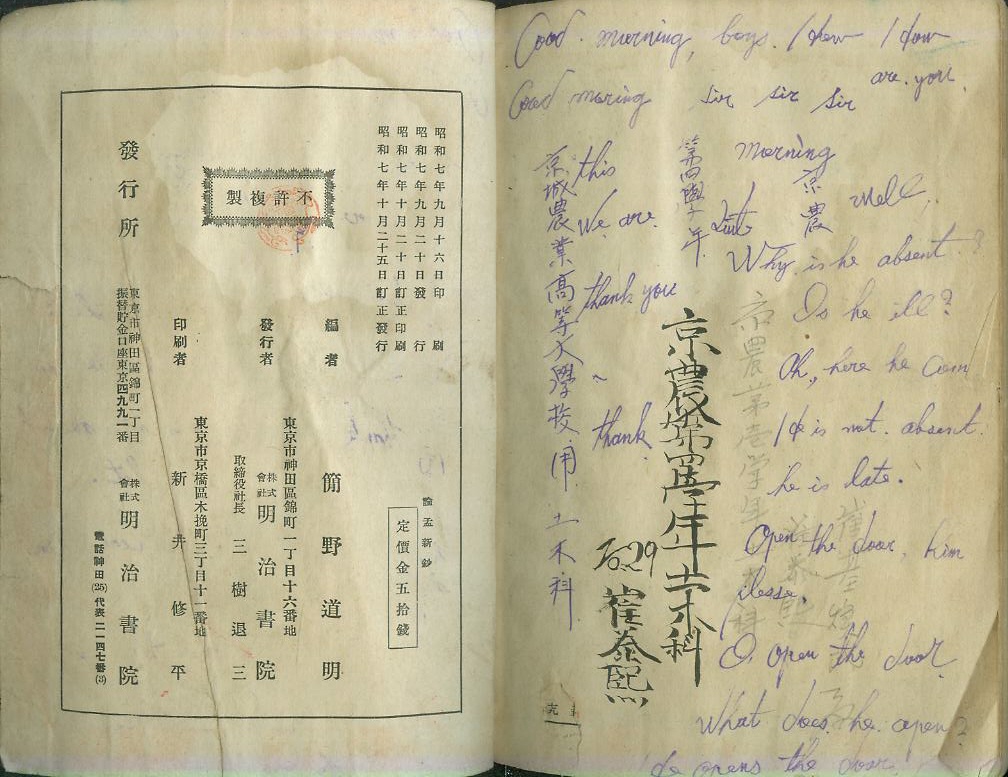 昭和七年九月十六日印刷
昭和七年九月二十日發行
昭和七年十月二十日訂正印刷
昭和七年十月二十五日訂正發行
不許複製
論孟新鈔
定價金五拾錢
編者 簡野道明
東京市神田區錦町一丁目十六番地
發行者 株式會社 明治書院
取締役社長 三樹退三
東京市京橋區木挽町三丁目十一番地
印刷者 新井修平
發行所 東京市神田區錦町一丁目
振替貯金口座東京四九九一番
株式會社 明治書院
電話神田(25)代表二一四七番(3)
Good morning, boys. How How
are you.
Good morning sir sir sir
this
morning
We are
Why is he absent?
thank you
Is he ill?
Oh, here he com
thank
is not absent.
he is late.
Open the door, him
O, open the door
What does he open?
opens the door
第四學年
京農
京城農業高等大學校用 土木科
京農第四學年土木科
No.29 崔泰熙
京農第壱学年